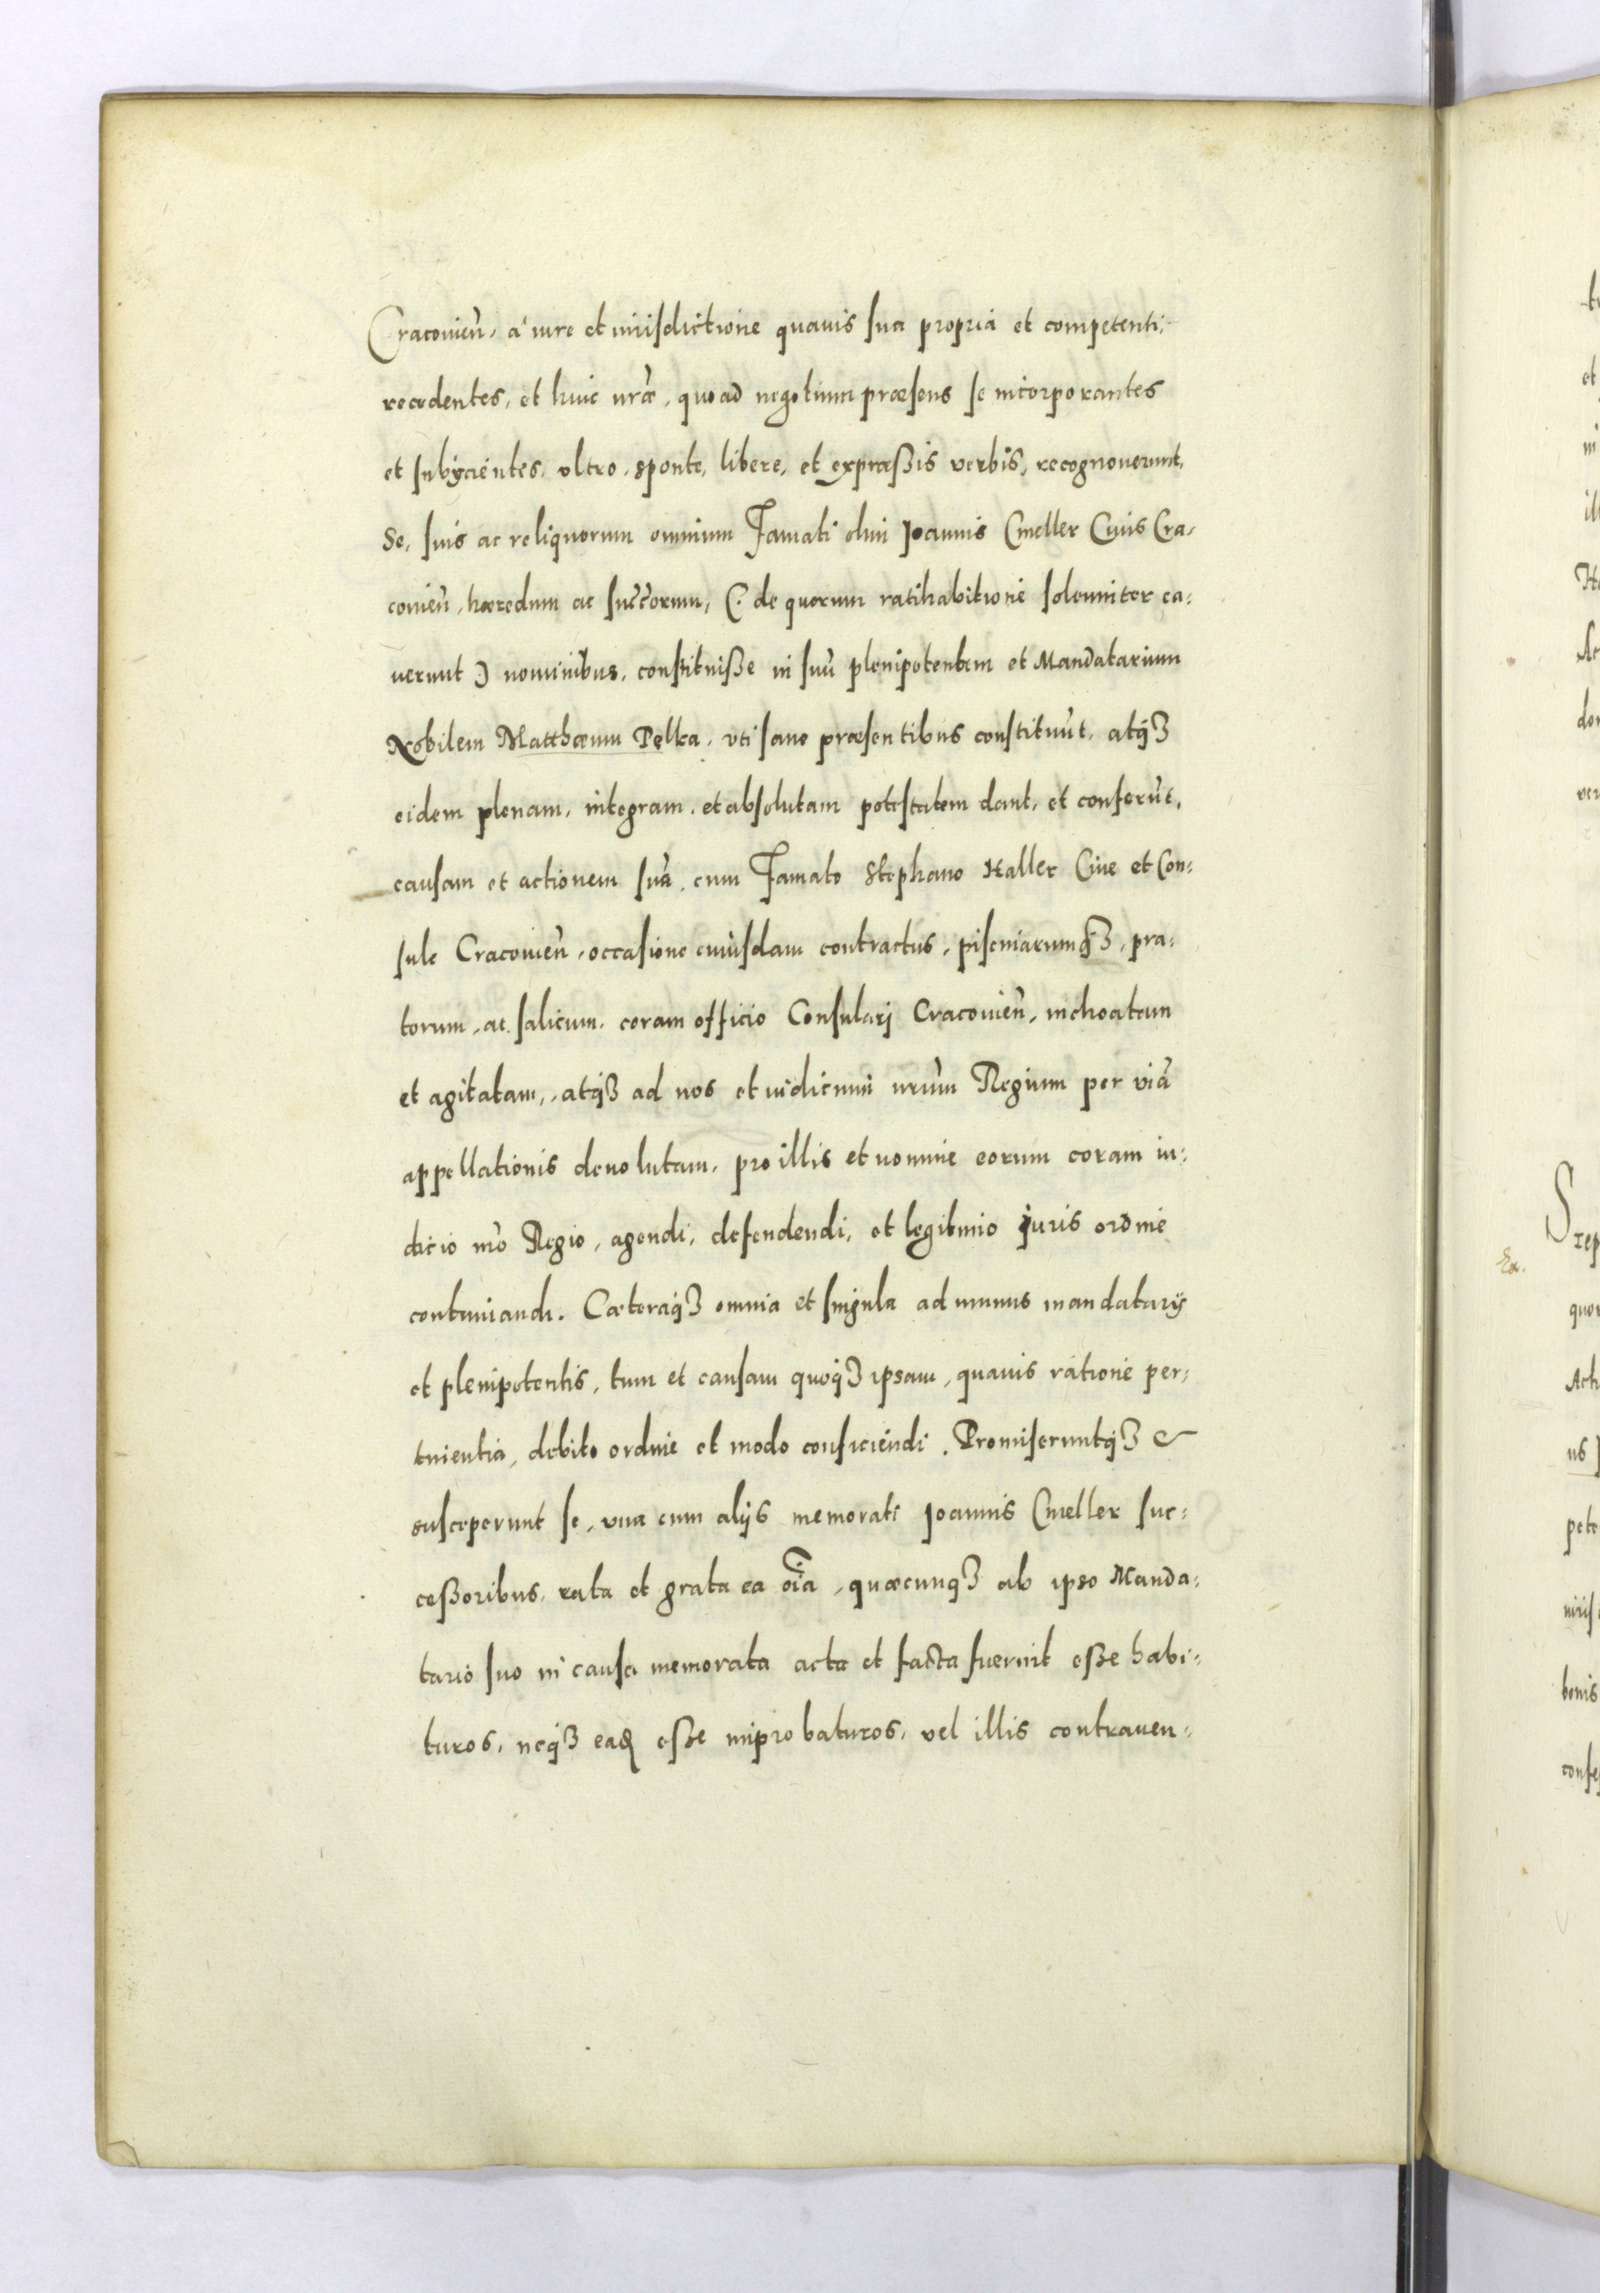 Cracovien̄, à iure et iurisdictione quauis sua propria et competenti,
recedentes, et huic nr̄æ, quoad negotium præsens se incorporantes
et subÿcientes, vltro, sponte, libere, et expræßis verbis, recognouerunt,
Se, suis ac reliquorum omnium Famati olim Ioannis Cmeller Ciuis Cra-
couien̄, hæredum ac succorum, (de quorum ratihabitione solenniter ca-
uerunt) nominibus, constituiße in suū plenipotentem et Mandatarium
Nobilem Matthæum Pęlka, vti sane præsentibus constituūt, atqꝫ
eidem plenam, integram, et absolutam potestatem dant, et conferūt,
causam et actionem suā, cum Famato Stephano Haller Ciue et Con-
sule Cracouien̄, occasione cuiusdam contractus, pisciniarumqꝫ, pra-
torum, ac salicum, coram officio Consulari Cracouien̄, inchoatam
et agitatam, atqꝫ ad nos et iudicium nr̄um Regium per viā
appellationis deuolutam, pro illis et nomine eorum coram iu-
dicio nr̄o Regio, agendi, defendendi, et legitimo iuris ordine
continuandi. Cæteraqꝫ omnia et singula ad munus mandatarÿ
et plenipotentis, tum et causam quoqꝫ ipsam, quauis ratione per-
tinentia, debito ordine et modo conficiendi. Promiseruntqꝫ &
susceperunt se, vna cum alÿs memorati Ioannis Cmeller suc-
ceßoribus, rata et grata ea oīa, quæcunqꝫ ab ipso Manda-
tario suo in causa memorata acta et facta fuerint eße habi-
turos, neqꝫ eadē eße improbaturos, vel illis contrauen-